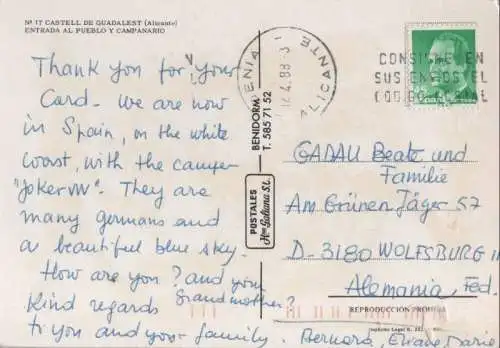 Nº 17 CASTELL DE GUADALEST (Alicante)
ENTRADA AL PUEBLO Y CAMPANARIO
Thank you for your
Card. We are now
in Spain, on the white
Coast, with the camper
"Joker VW". They are
many germans and
a beautiful blue sky.
How are you? and your
grandmother?
Kind regards
to you and your family.
Bernard, Eliane, Marie
POSTALES
Hnos Galiana S.L.
BENIDORM
T. 585 71 52
DENIA
ALICANTE
4.88
CONSIGNE EN
SUS ENVIOS EL
CODIGO POSTAL
GADAU Beate und
Familie
Am Grünen Jäger 57
D-3180 WOLFSBURG
Alemania, Fed.
REPRODUCCION